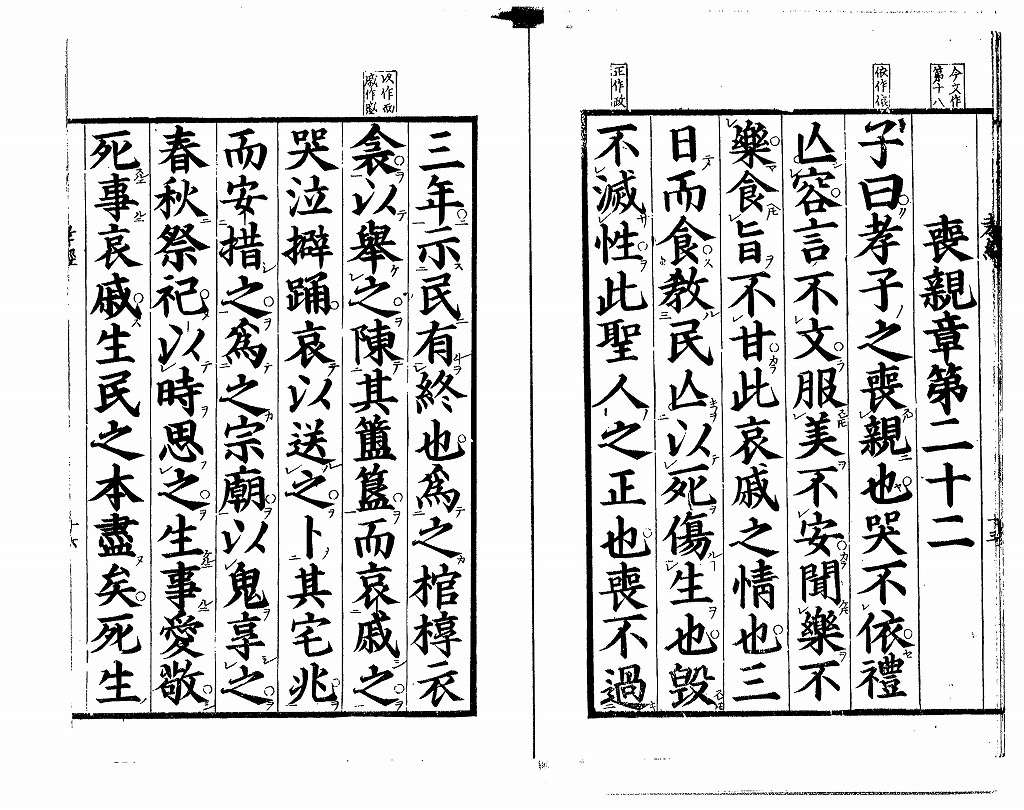 今文作
第十八
依作偯
正作政
喪親章第二十二
子曰孝子之喪親也哭不依禮
亾容言不文服美不安聞樂不
樂食旨不甘此哀戚之情也三
日而食教民亾以死傷生也毀
不滅性此聖人之正也喪不過
三年示民有終也爲之棺椁衣
衾以舉之陳其簠簋而哀戚之
哭泣擗踊哀以送之卜其宅兆
而安措之爲之宗廟以鬼享之
春秋祭祀以時思之生事愛敬
死事哀戚生民之本盡矣死生